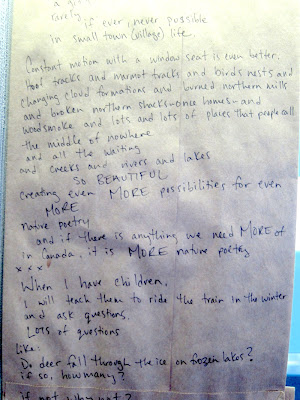 a gi
rarely
if ever, never possible
in small town (village) life.
Constant motion with a window seat is even better.
tracks and marmot tracks and birds nests and
changing cloud formations and burned northern mills
and broken northern shacks-once homes-and
woodsmoke and lots and lots of places that people call
the middle of nowhere
and all the waiting
and creeks and rivers and lakes
so BEAUTIFUL
creating even MORE possibilities for even
MORE
nature poetry
and if there is anything we need MORE of
in Canada, it is MORE nature poetry
x x x
When I have children,
I will teach them to ride the train in the winter
and ask questions.
Lots of questions
Like:
Do deer fall through the ice on frozen lakes?
if so, how many?
if not why not?